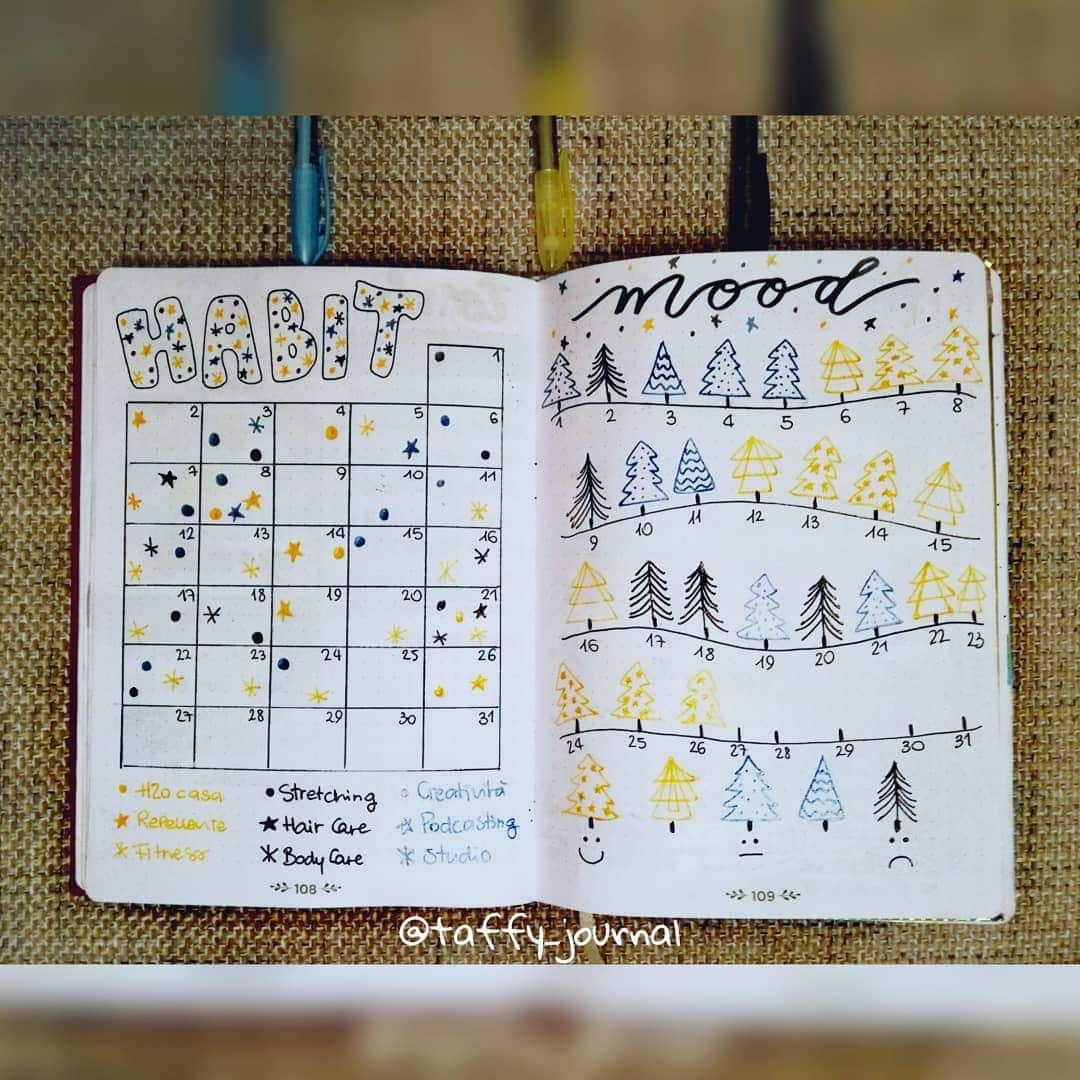 HABIT
1
2 3 4 5 6
7 8 9 10 11
12 13 14 15 16
17 18 19 20 21
22 23 24 25 26
27 28 29 30 31
H2O casa
Stretching
Creatività
Repellente
Hair Care
Podcasting
Fitness
Body Care
Studio
108
mood
1 2 3 4 5 6 7 8
9 10 11 12 13 14 15
16 17 18 19 20 21 22 23
24 25 26 27 28 29 30 31
109
@taffy_journal